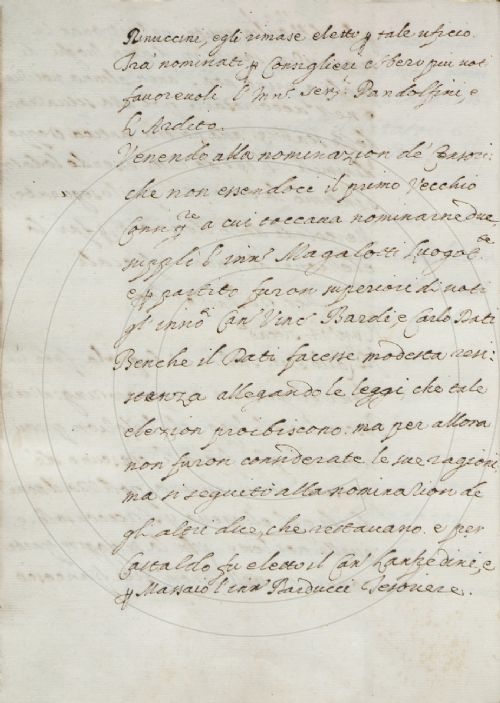 Rinuccini, egli rimase eletto p tale uficio.
Trà nominati p Consiglieri ebbero piu voti
favorevoli l'Inn. Ser. Pandolfini, e
l'Ardito.
Venendo alla nominazion de' Censori
che non essendoce il primo Vecchio
Conn a cui toccaua nominarne due,
supplì l'inn. Magalotti Luogot.te
e p partito furon superiori di uoti
gl'inno.i Can. Vinc. Bardi, e Carlo Dati
Benche il Dati facesse modesta resi:
stenza allegando le leggi che tale
elezion proibiscono: ma per allora
non furon considerate le sue ragioni
ma si seguitò alla nominazion de
gli altri due, che restauano. e per
Castaldo fu eletto il Can. Lanfredini, e
p Massaio l'inn. Barducci Tesoriere.